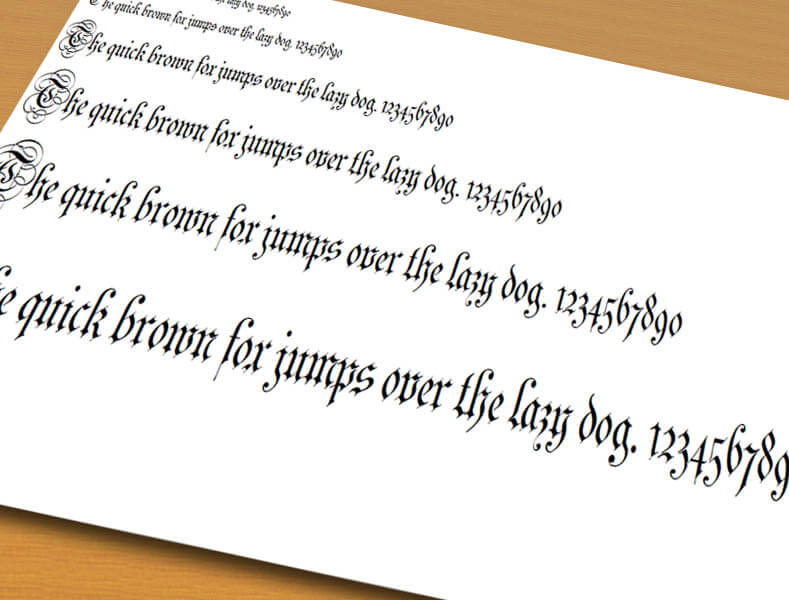 the lazy dog. 1234567890
The quick brown fox jumps over the lazy dog. 1234567890
The quick brown fox jumps over the lazy dog. 1234567890
The quick brown fox jumps over the lazy dog. 1234567890
The quick brown fox jumps over the lazy dog. 1234567890
he quick brown fox jumps over the lazy dog. 123456789